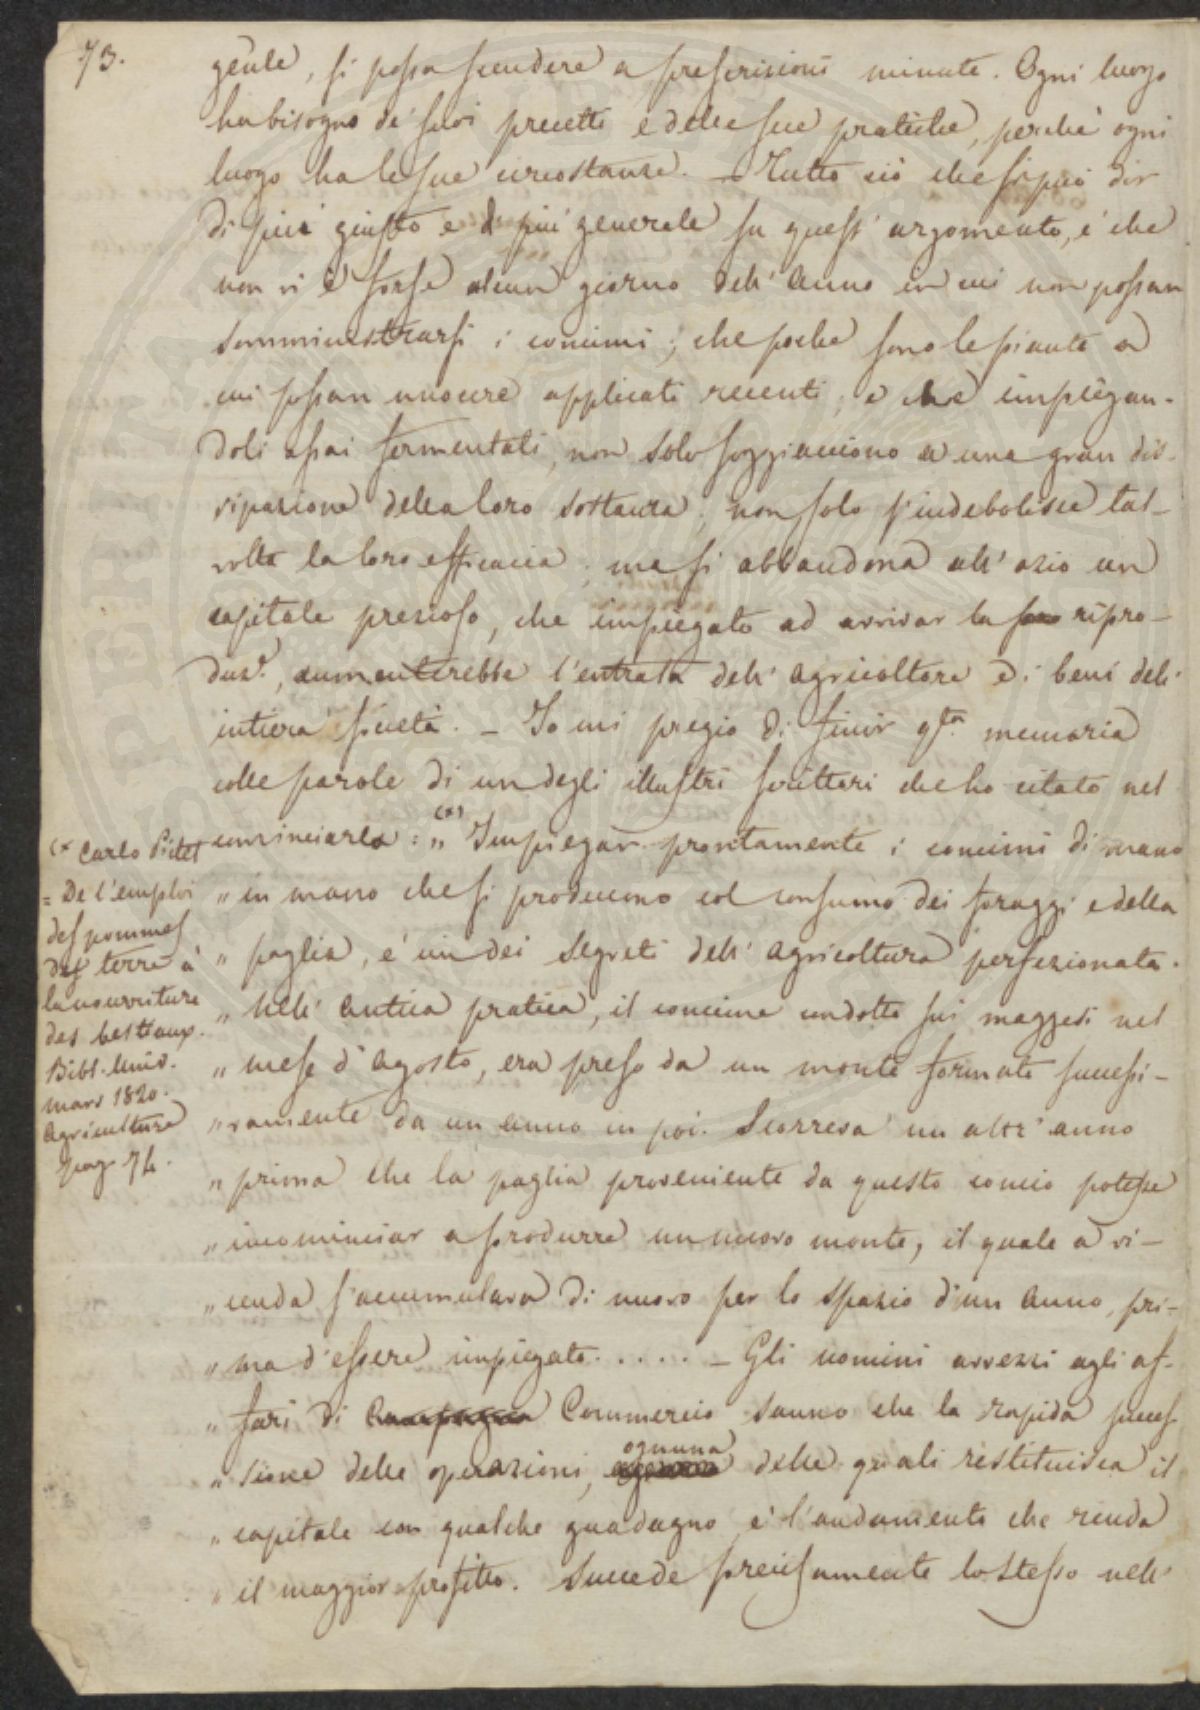 73.
gente, si possa scendere a prescrizioni minute. Ogni luogo
ha bisogno de' suoi precetti e delle sue pratiche, perchè ogni
luogo ha le sue circostanze. _ Tutto ciò che si può dir
di più giusto e di più generale su quest' argomento, è che
non vi è forse alcun giorno dell' anno in cui non possan
somministrarsi i concimi; che poche sono le piante a
cui possan nuocere applicati recenti; e che impiegan-
doli assai fermentati, non solo soggiacciono a una gran dis-
sipazione della loro sostanza; non solo s'indebolisce tal-
volta la loro efficacia; ma si abbandona all' ozio un
capitale prezioso, che impiegato ad avvivar la ripro-
duz.e, aumenterebbe l'entrata dell' agricoltore e i beni dell'
intiera società. _ Io mi pregio di finir q.sta memoria
colle parole di un degli illustri scrittori che ho citato nel
cominciarla: (*) „ Impiegar prontamente i concimi di mano
„ in mano che si producono col consumo dei foraggi e della
„ paglia, è un dei segreti dell' agricoltura perfezionata.
„ Nell' antica pratica, il concime condotto sui maggesi nel
„ mese d' Agosto, era preso da un monte formato successi-
„ vamente da un anno in poi. Scorreva un altr' anno
„ prima che la paglia proveniente da questo concio potesse
„ incominciar a produrre un nuovo monte, il quale a vi-
„ cenda s'accumulava di nuovo per lo spazio d'un anno, pri-
„ ma d'essere impiegato. . . . . _ Gli uomini avvezzi agli af-
„ fari di Campagna Commercio sanno che la rapida succes
„ sione delle operazioni, ognuna delle quali restituisca il
„ capitale con qualche guadagno è l'andamento che renda
„ il maggior profitto. Succede precisamente lo stesso nell'
(* Carlo Pictet
= De l'emploi
des pommes
des terre à
la nourriture
des bestiaux.
Bibl. Univ.
mars 1820.
Agriculture
pag. 74.